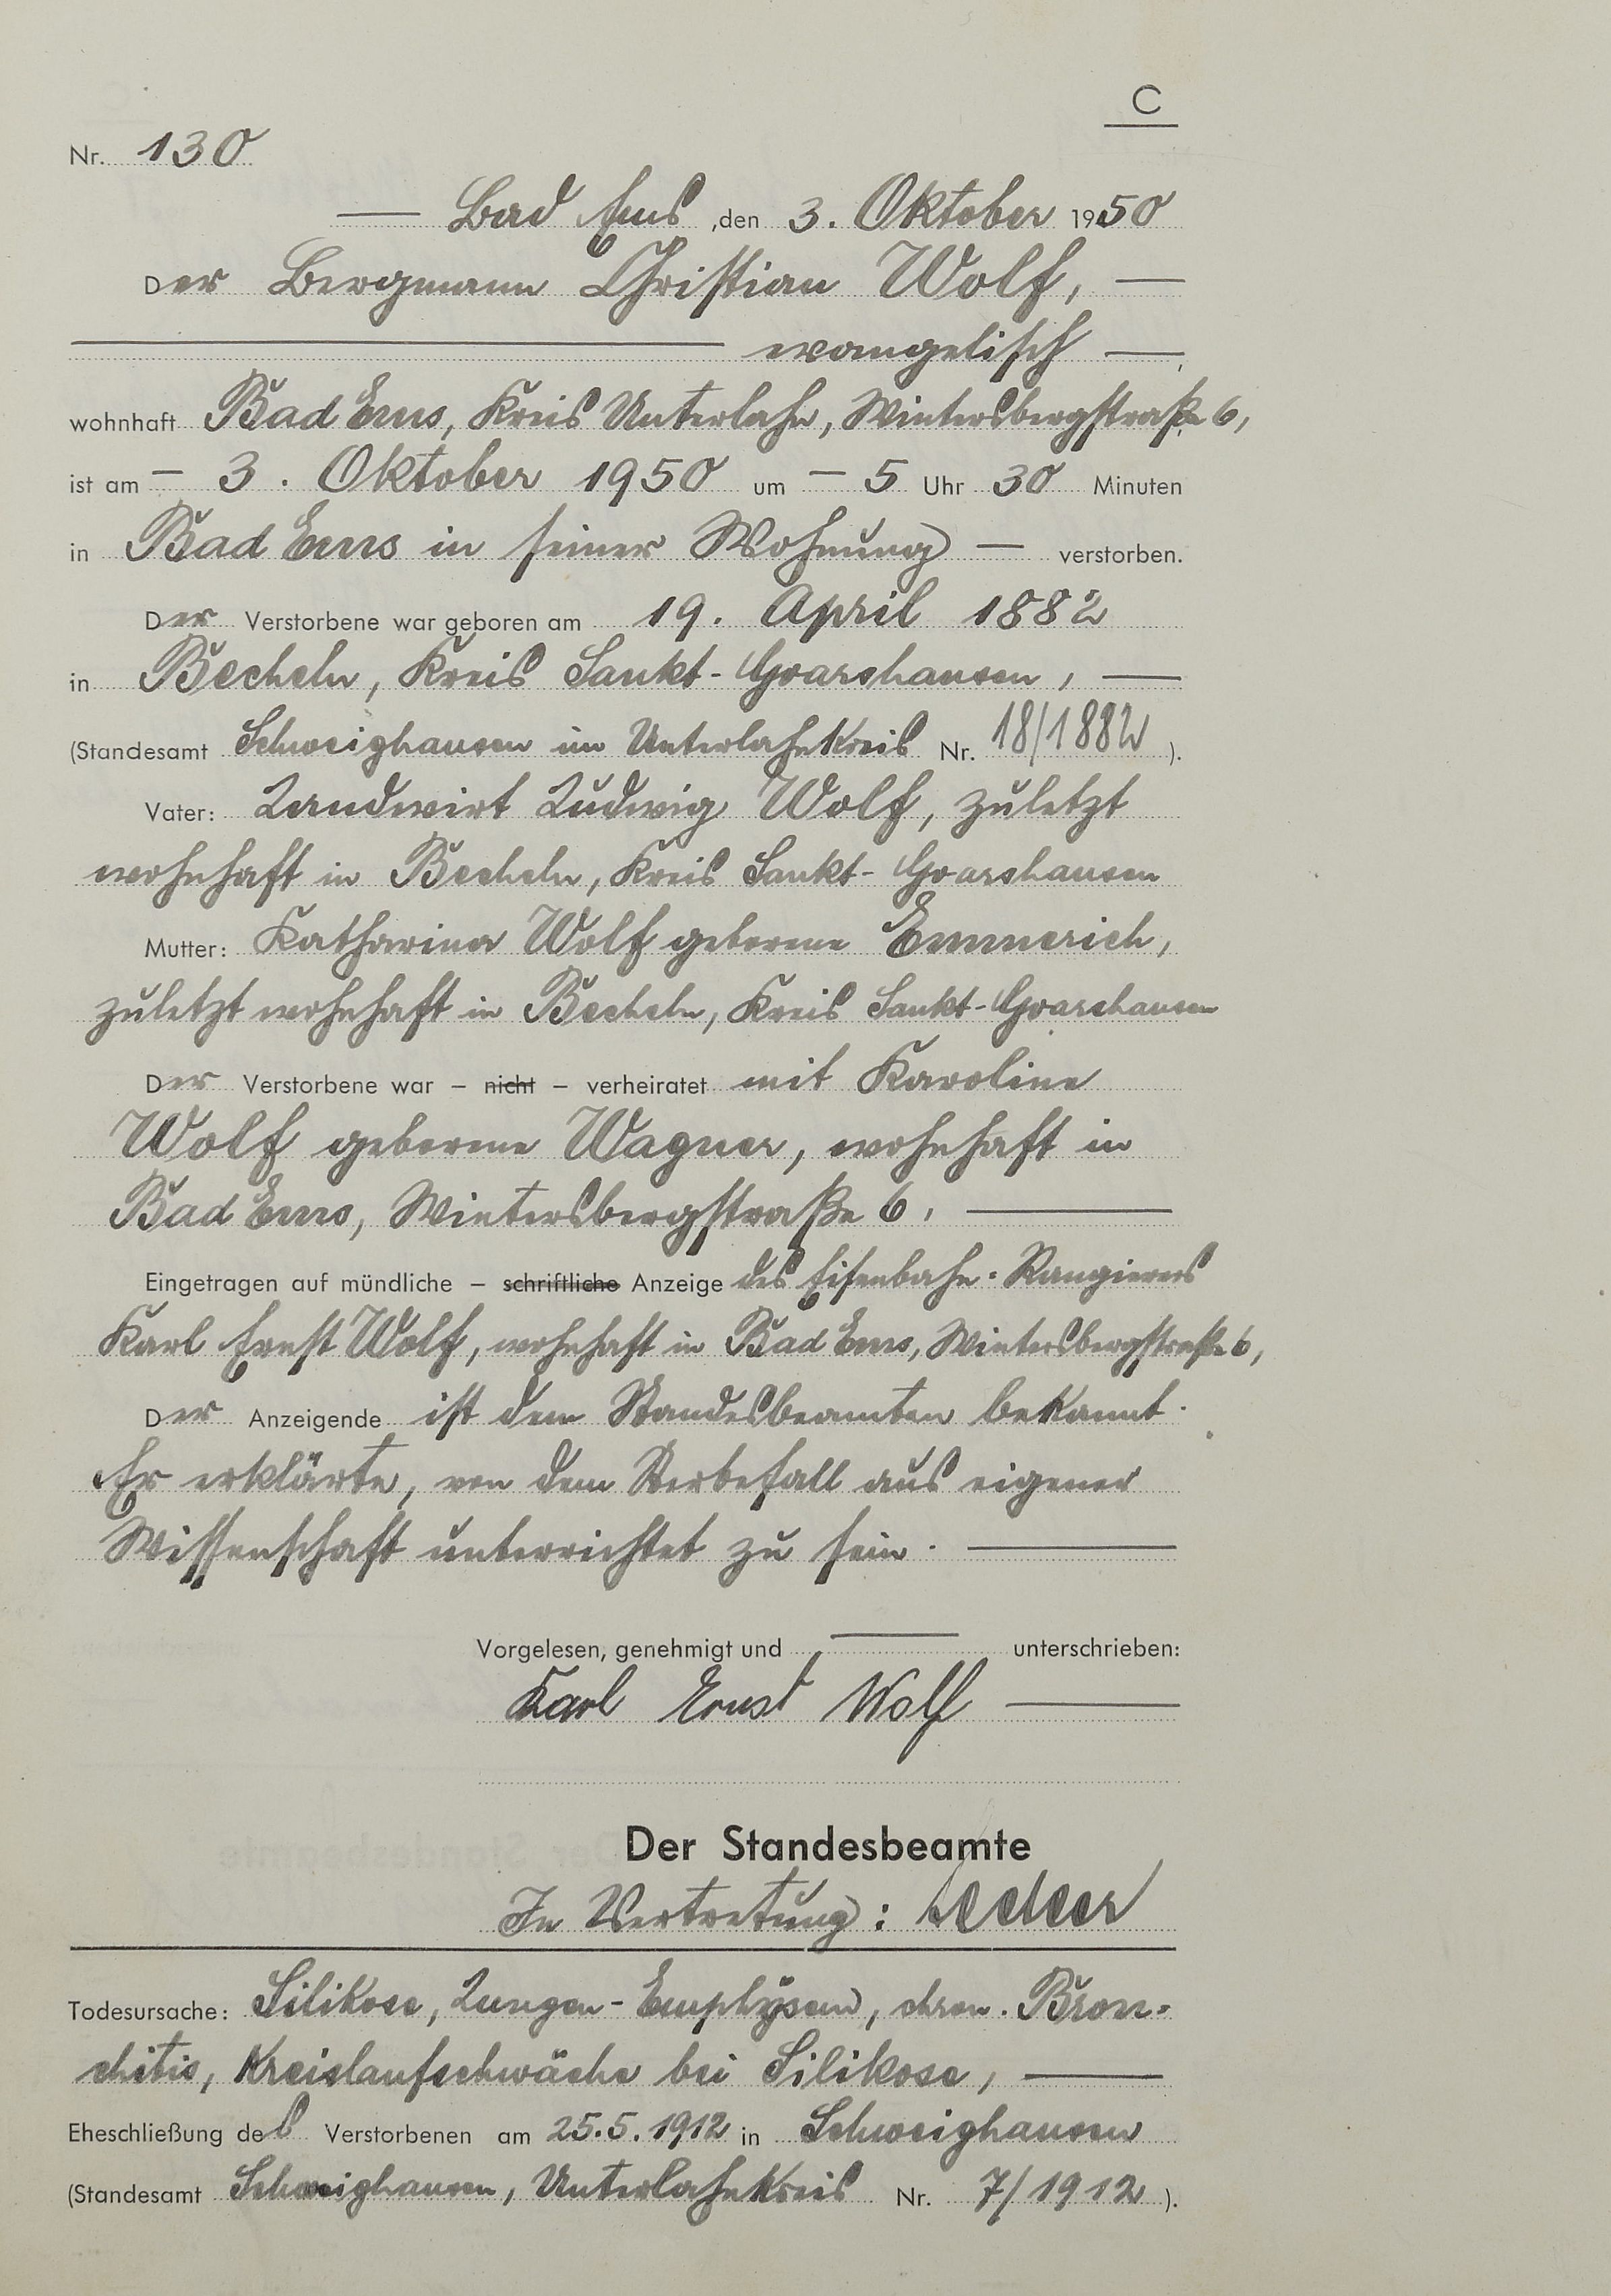 C
Nr. 130
Bad Ems, den 3. Oktober 1950
Der Bergmann Christian Wolf,
evangelisch
wohnhaft Bad Ems, Kreis Unterlahn, Wintersbergstraße 6,
ist am 3. Oktober 1950 um 5 Uhr 30 Minuten
in Bad Ems in seiner Wohnung verstorben.
Der Verstorbene war geboren am 19. April 1882
in Becheln, Kreis Sankt-Goarshausen,
(Standesamt Schweighausen im Unterlahnkreis Nr. 18/1882).
Vater: Landwirt Ludwig Wolf, zuletzt
wohnhaft in Becheln, Kreis Sankt-Goarshausen
Mutter: Katharina Wolf geborene Emmerich,
zuletzt wohnhaft in Becheln, Kreis Sankt-Goarshausen
Der Verstorbene war – nicht – verheiratet mit Karoline
Wolf geborene Wagner, wohnhaft in
Bad Ems, Wintersbergstraße 6.
Eingetragen auf mündliche – schriftliche Anzeige des Eisenbahn-Rangierers
Karl Ernst Wolf, wohnhaft in Bad Ems, Wintersbergstraße 6,
Der Anzeigende ist dem Standesbeamten bekannt.
Er erklärte, von dem Sterbefall aus eigener
Wissenschaft unterrichtet zu sein.
Vorgelesen, genehmigt und unterschrieben:
Karl Ernst Wolf
Der Standesbeamte
In Vertretung:
Todesursache: Silikose, Lungen-Emphysem, chron. Bron-
chitis, Kreislaufschwäche bei Silikose,
Eheschließung des Verstorbenen am 25.5.1912 in Schweighausen
(Standesamt Schweighausen, Unterlahnkreis Nr. 7/1912).